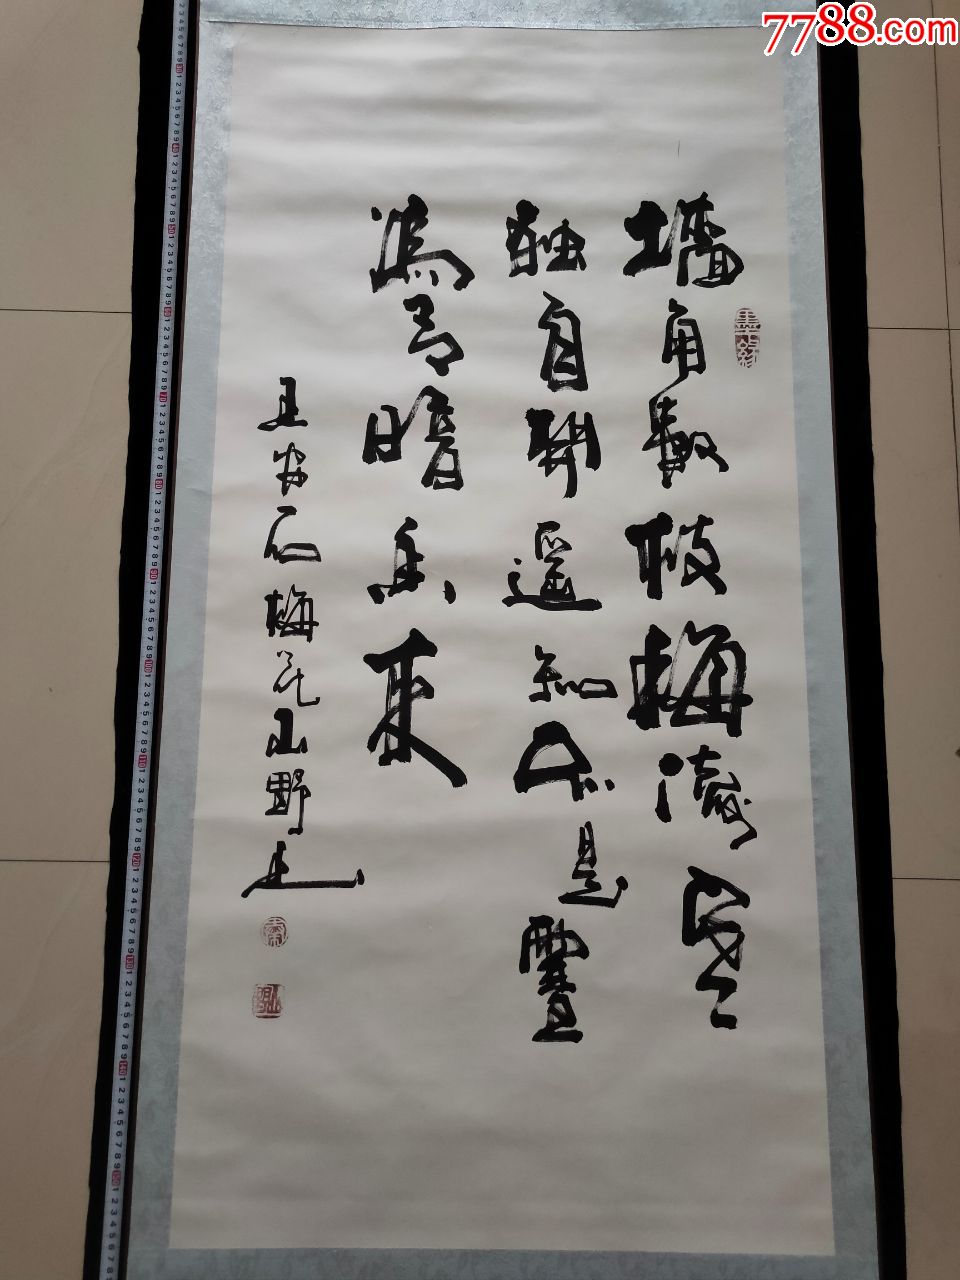 7788.com
墙角数枝梅凌寒
独自開遥知不是雪
為有暗香来
王安石梅花山野
墨緣